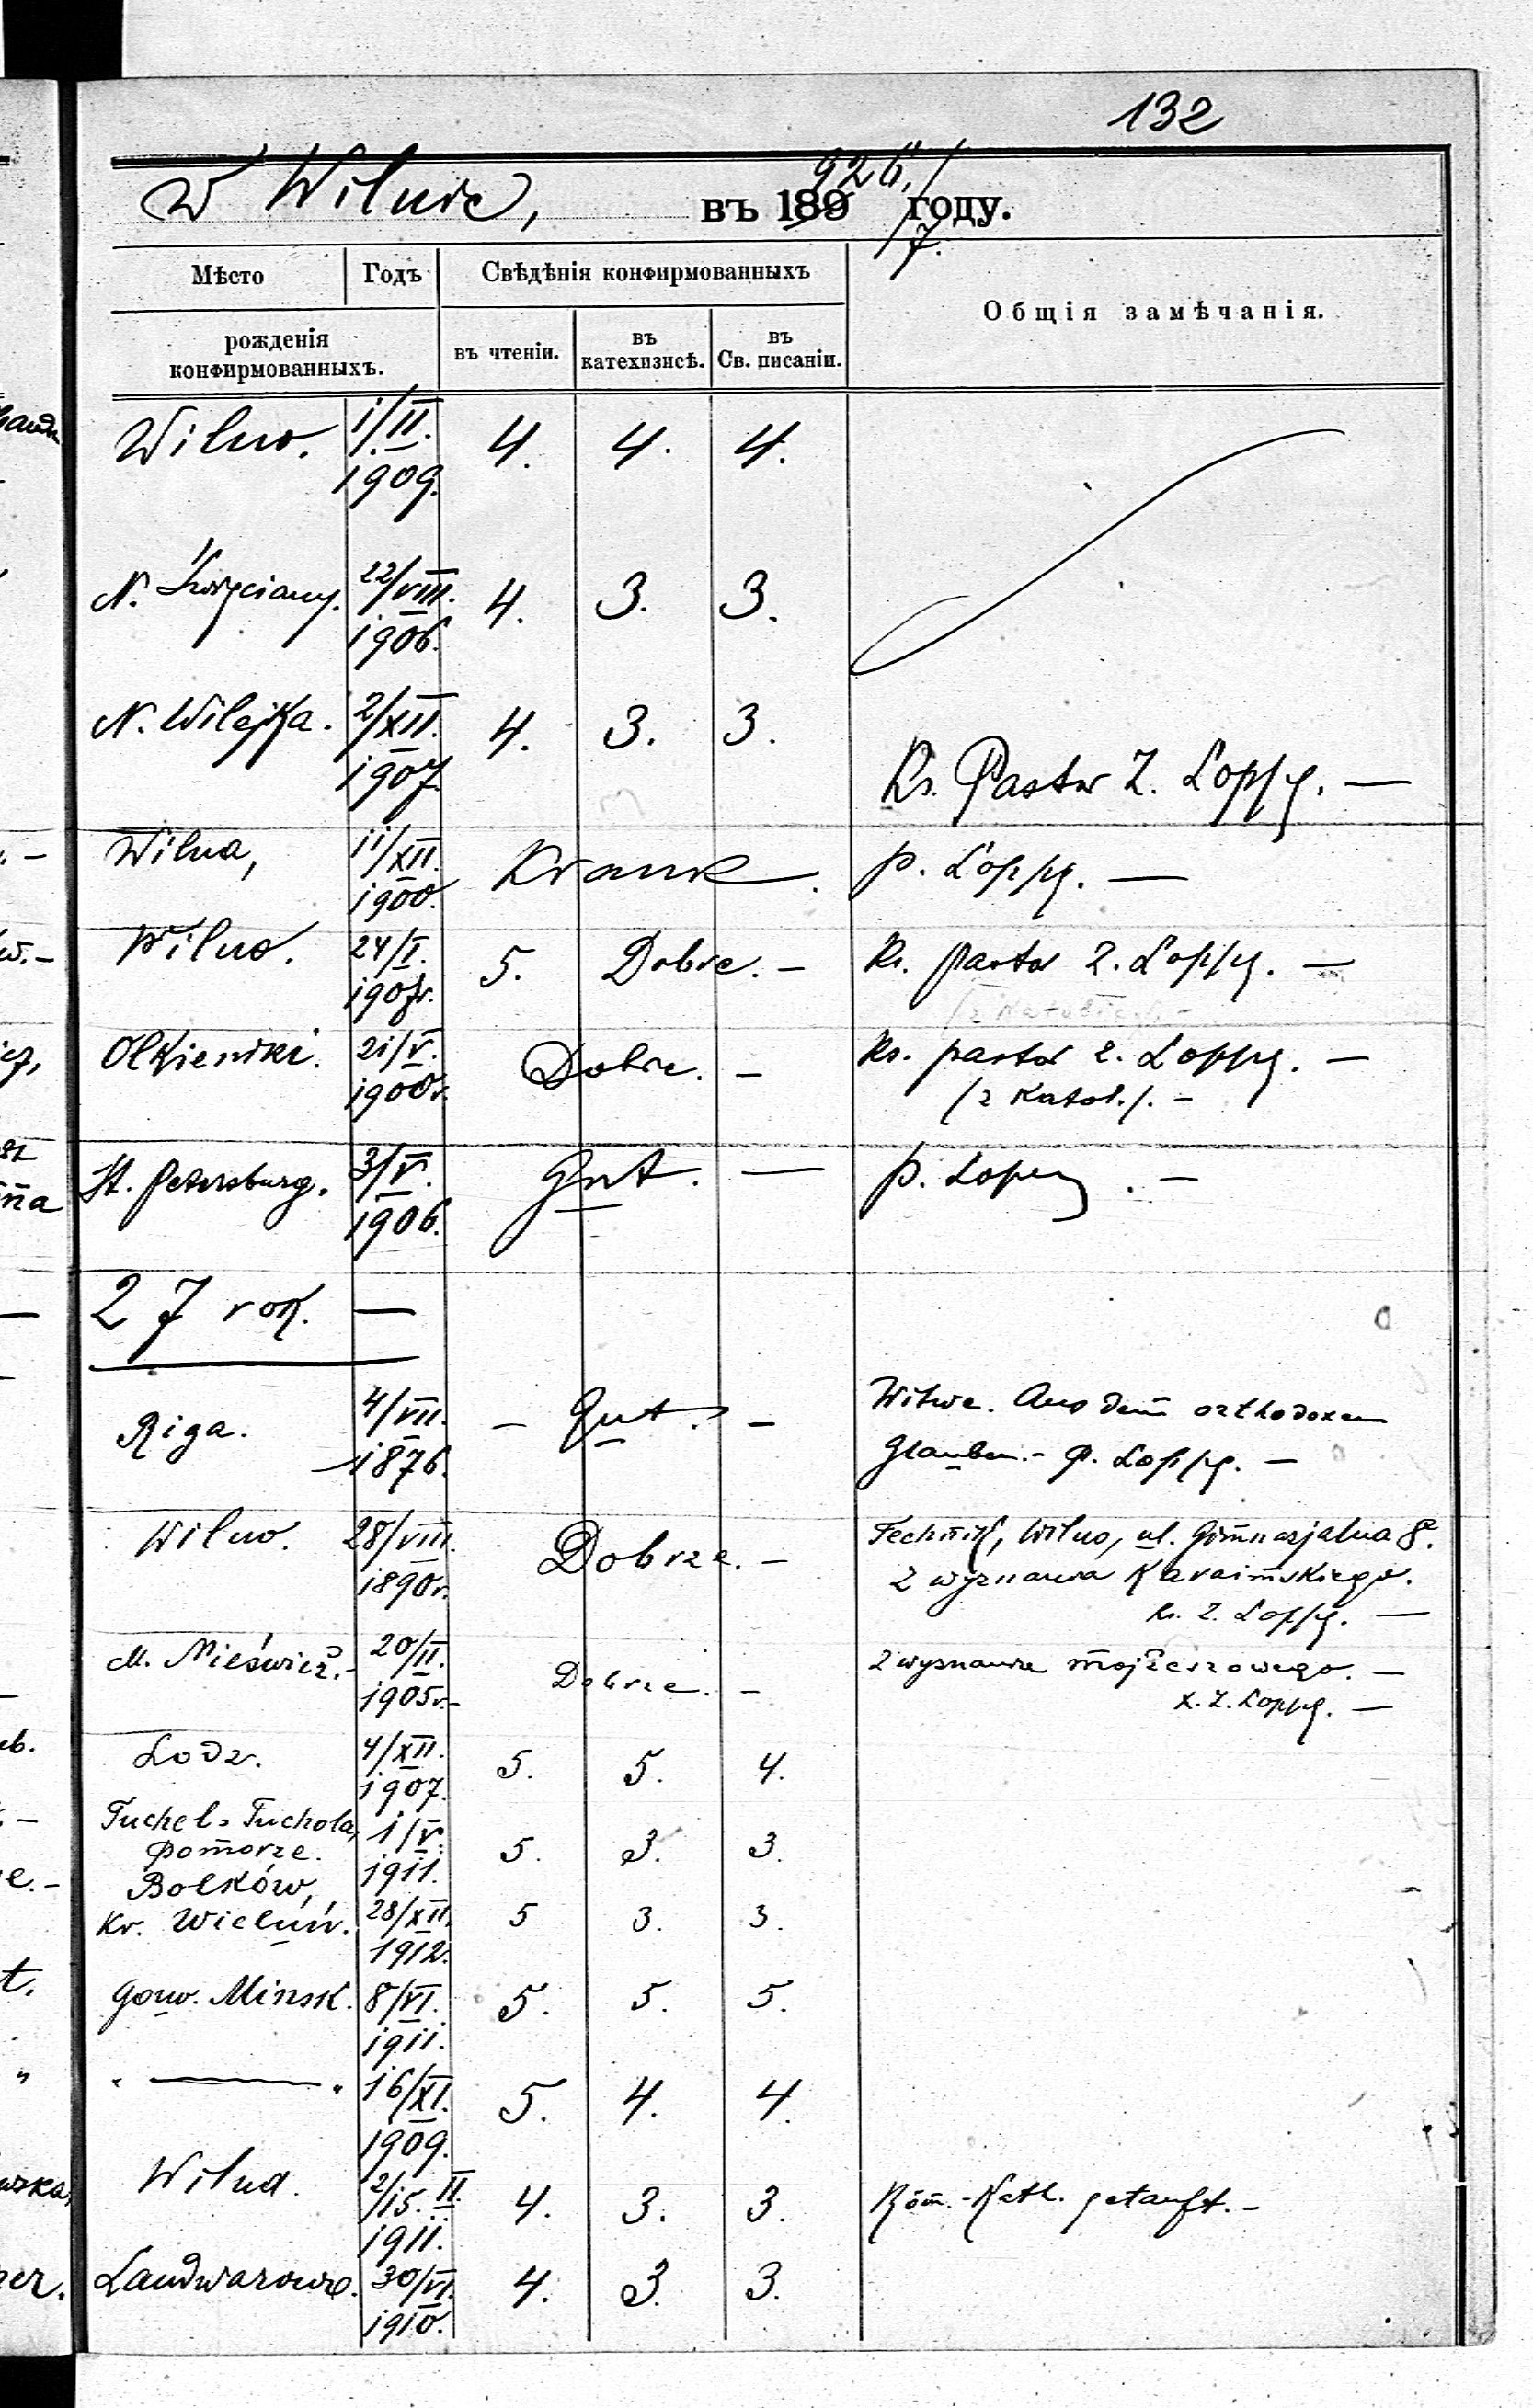 132
w Wilnie, въ 189 926/7. году.
Мѣсто Годъ Свѣдѣнія конфирмованныхъ Общія замѣчанія.
рожденія конфирмованныхъ. въ чтеніи. въ катехизисѣ. въ Св. писаніи.
Wilno. 1/II. 1909. 4. 4. 4.
N. Święciany. 22/VIII. 1906. 4. 3. 3.
N. Wilejka. 2/XII. 1907. 4. 3. 3. Ks. Pastor Z. Loppe. —
Wilna, 11/XII. 1900. Krank. P. Loppe. —
Wilno. 24/I. 1907r. 5. Dobrze. — Ks. pastor Z. Loppe. —
Olkieniki. 21/V. 1900r. Dobrze. — Ks. pastor Z. Loppe. —
(z katol.). —
St. Petersburg. 3/V. 1906. Gut. — P. Loppe. —
27 rok. —
Riga. 4/VII. 1876. — Gut. — Witwe. Aus dem orthodoxen
Glauben. - P. Loppe. —
Wilno. 28/VIII. 1890r. Dobrze. — Technik, Wilno, ul. Gimnazjalna 8.
Z wyznania Karaimskiego.
Ks. Z. Loppe. —
M. Nieśwież. - 20/II. 1905r. - Dobrze. — Z wyznania mojżeszowego. —
X. Z. Loppe. —
Lodz. 4/XII. 1907. 5. 5. 4.
Tuchel = Tuchola,
Pomorze. 1/V. 1911. 5. 3. 3.
Bolków,
Kr. Wieluń. 28/XII. 1912. 5 3. 3.
Gouv. Minsk. 8/VI. 1911. 5. 5. 5.
" — " 16/XI. 1909. 5. 4. 4.
Wilna. 2/15. II. 1911. 4. 3. 3. Röm.-Kath. getauft. —
Landwarowo. 30/VI. 1910. 4. 3. 3.